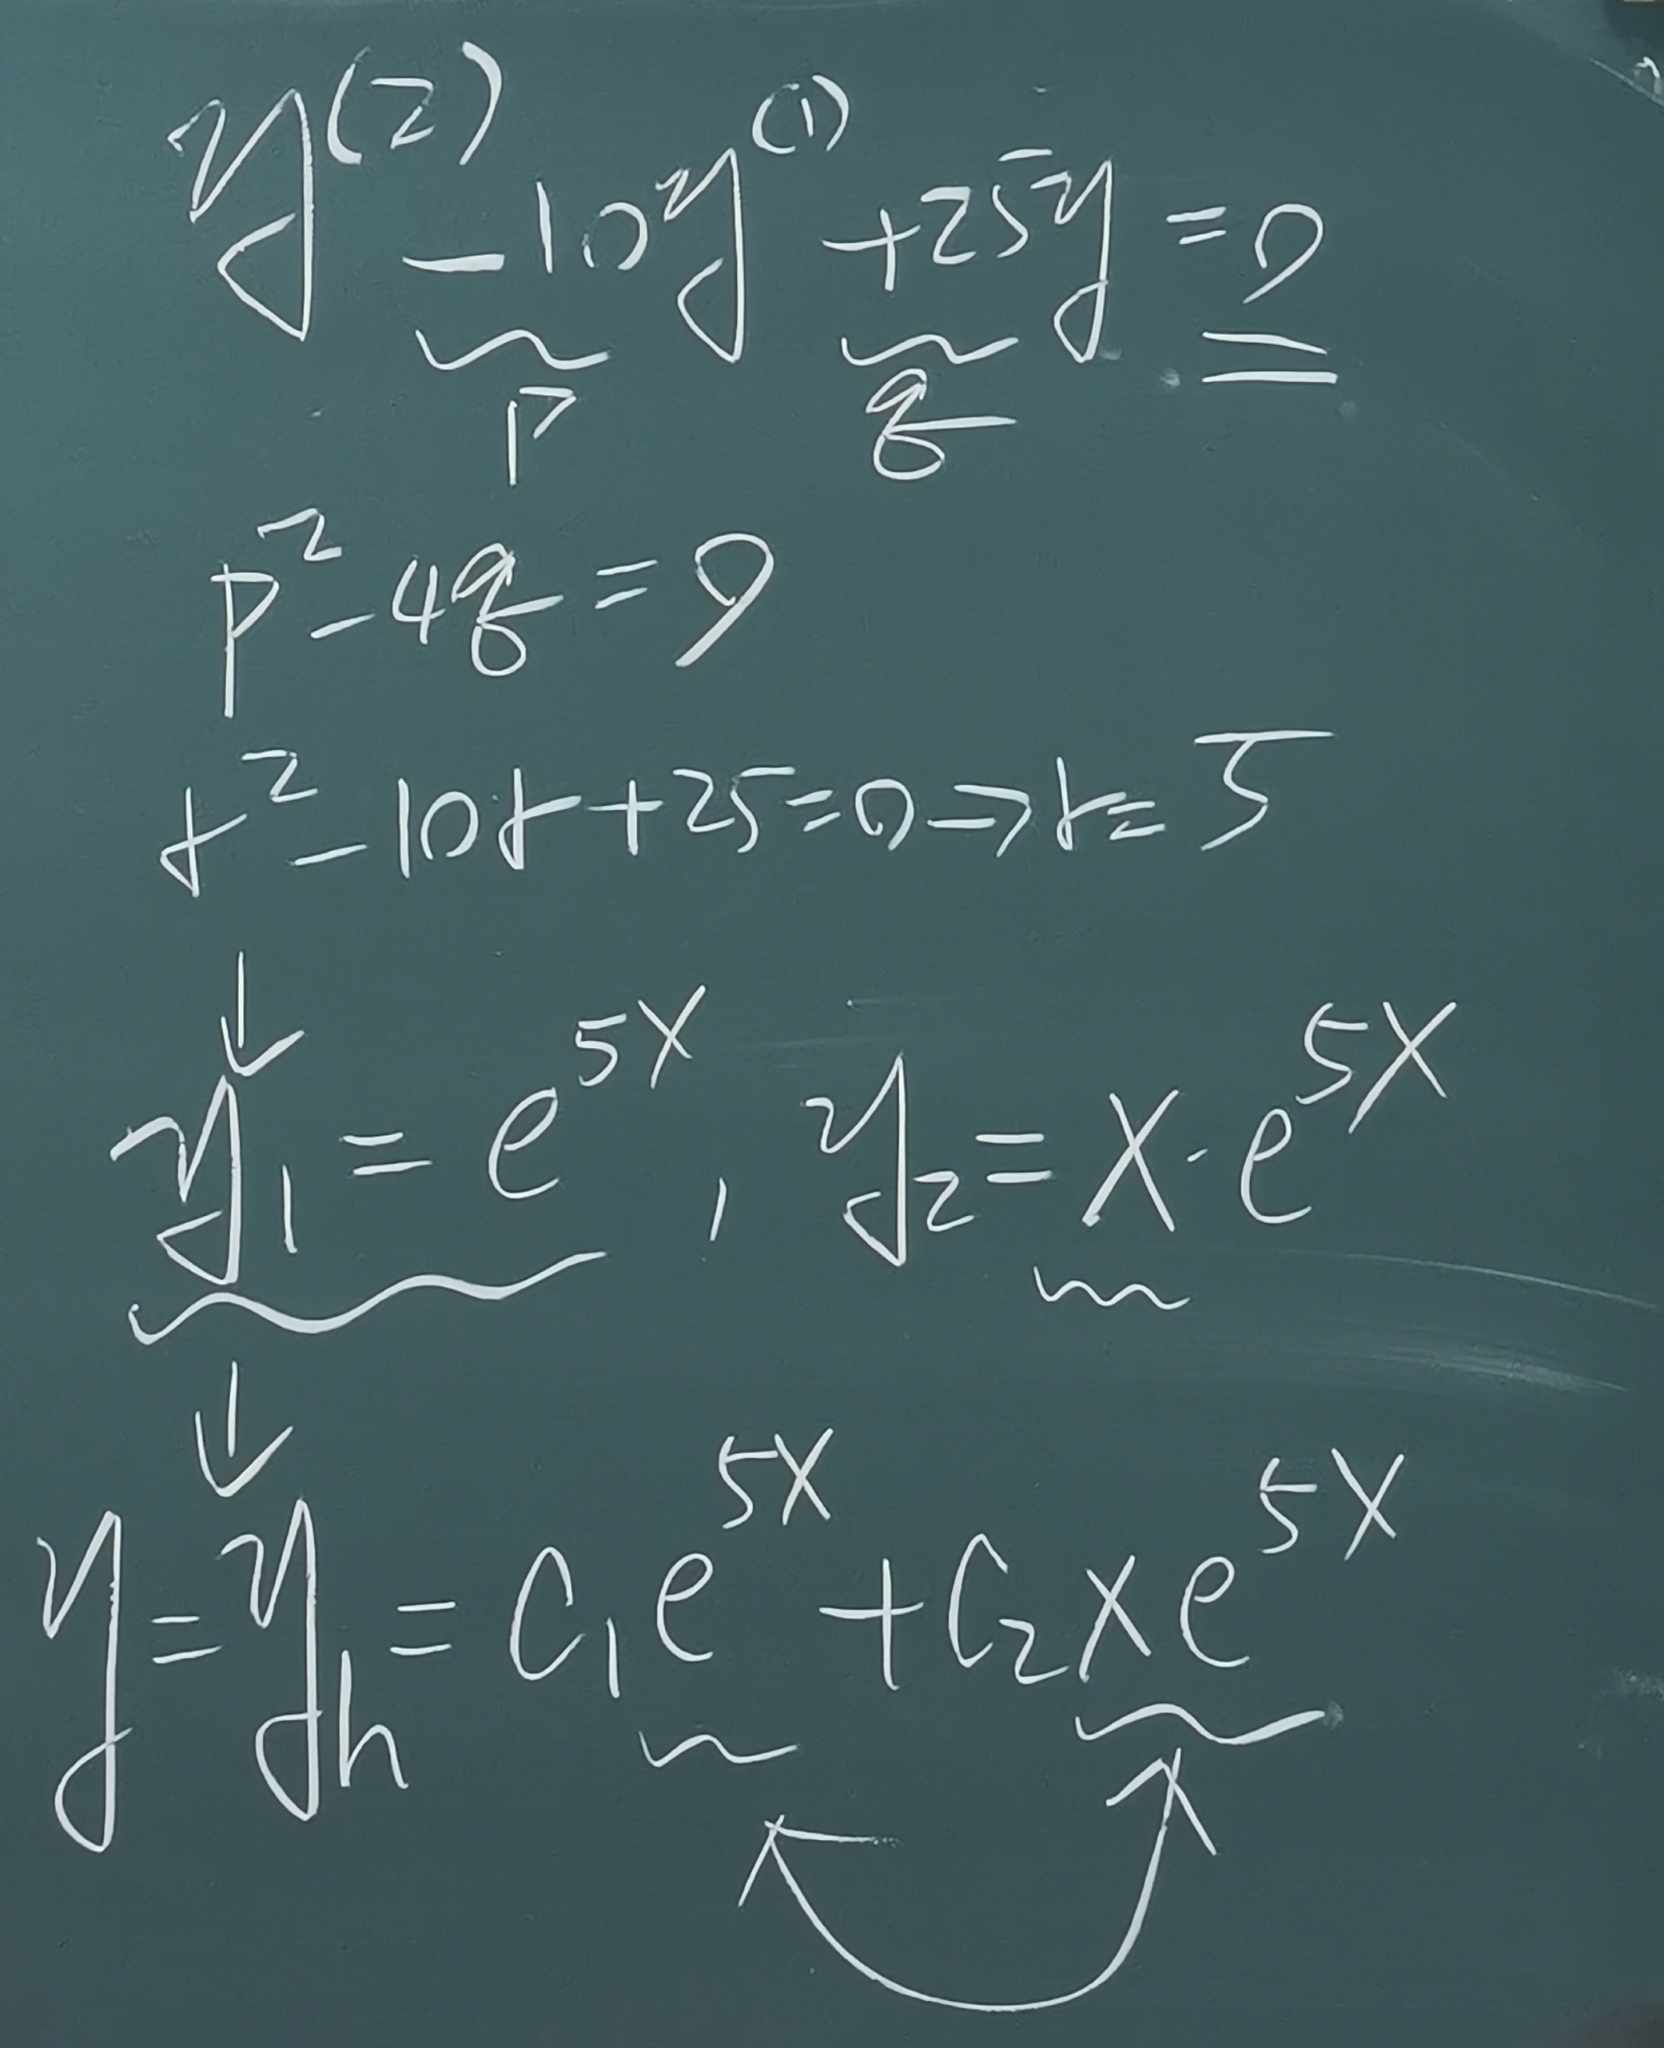 y⁽²⁾ -10y⁽¹⁾ +25y = 0
p q
p² - 4q = 0
t² - 10t + 25 = 0 → t = 5
↓
y₁ = e⁵ˣ , y₂ = x · e⁵ˣ
↓
y = yₕ = C₁e⁵ˣ + C₂xe⁵ˣ